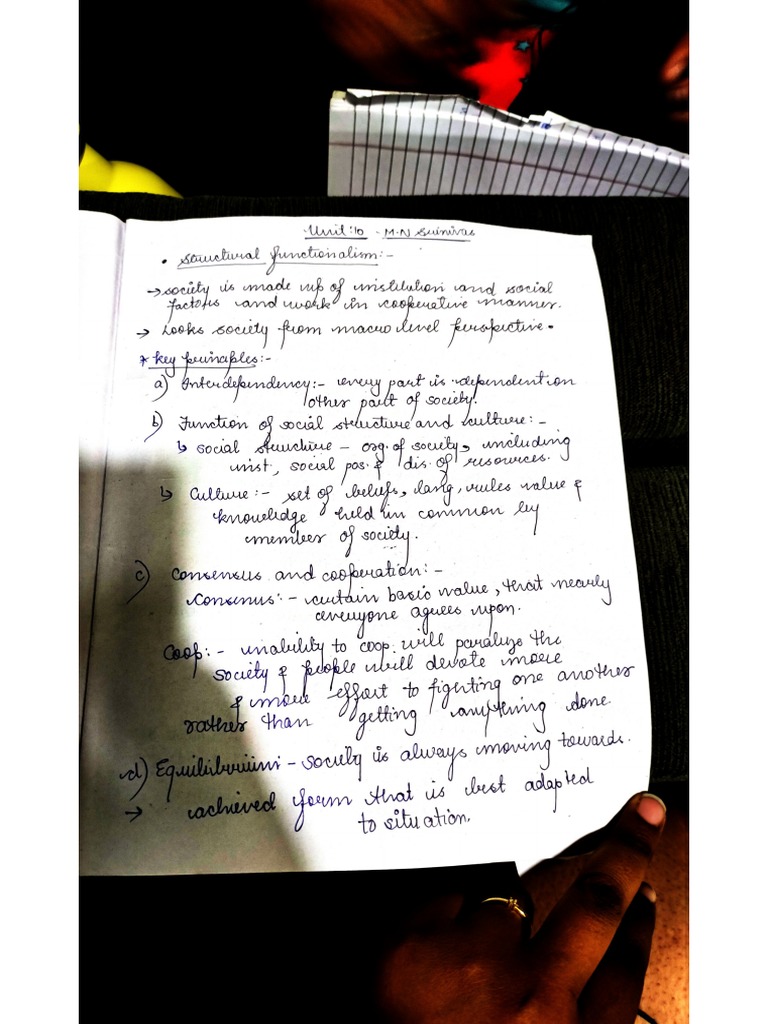 Unit:10 - M.N Srinivas
• Structural functionalism:-
→ society is made up of institution and social
factors and work in cooperative manner.
→ Looks society from macro level perspective.
* key principles:-
a) Interdependency:- every part is dependent on
other part of society.
b) Function of social structure and culture:-
↳ social structure - org. of society, including
inst, social pos. & dis. of resources.
↳ Culture:- set of beliefs, lang, rules value &
knowledge held in common by
member of society.
c) consensus and cooperation:-
Consenus:- certain basic value, that nearly
everyone agrees upon.
Coop:- inability to coop. will paralize the
society & people will devote more
& more effort to fighting one another
rather than getting anything done.
d) Equilibrium - society is always moving towards.
→ achieved form that is best adapted
to situation.